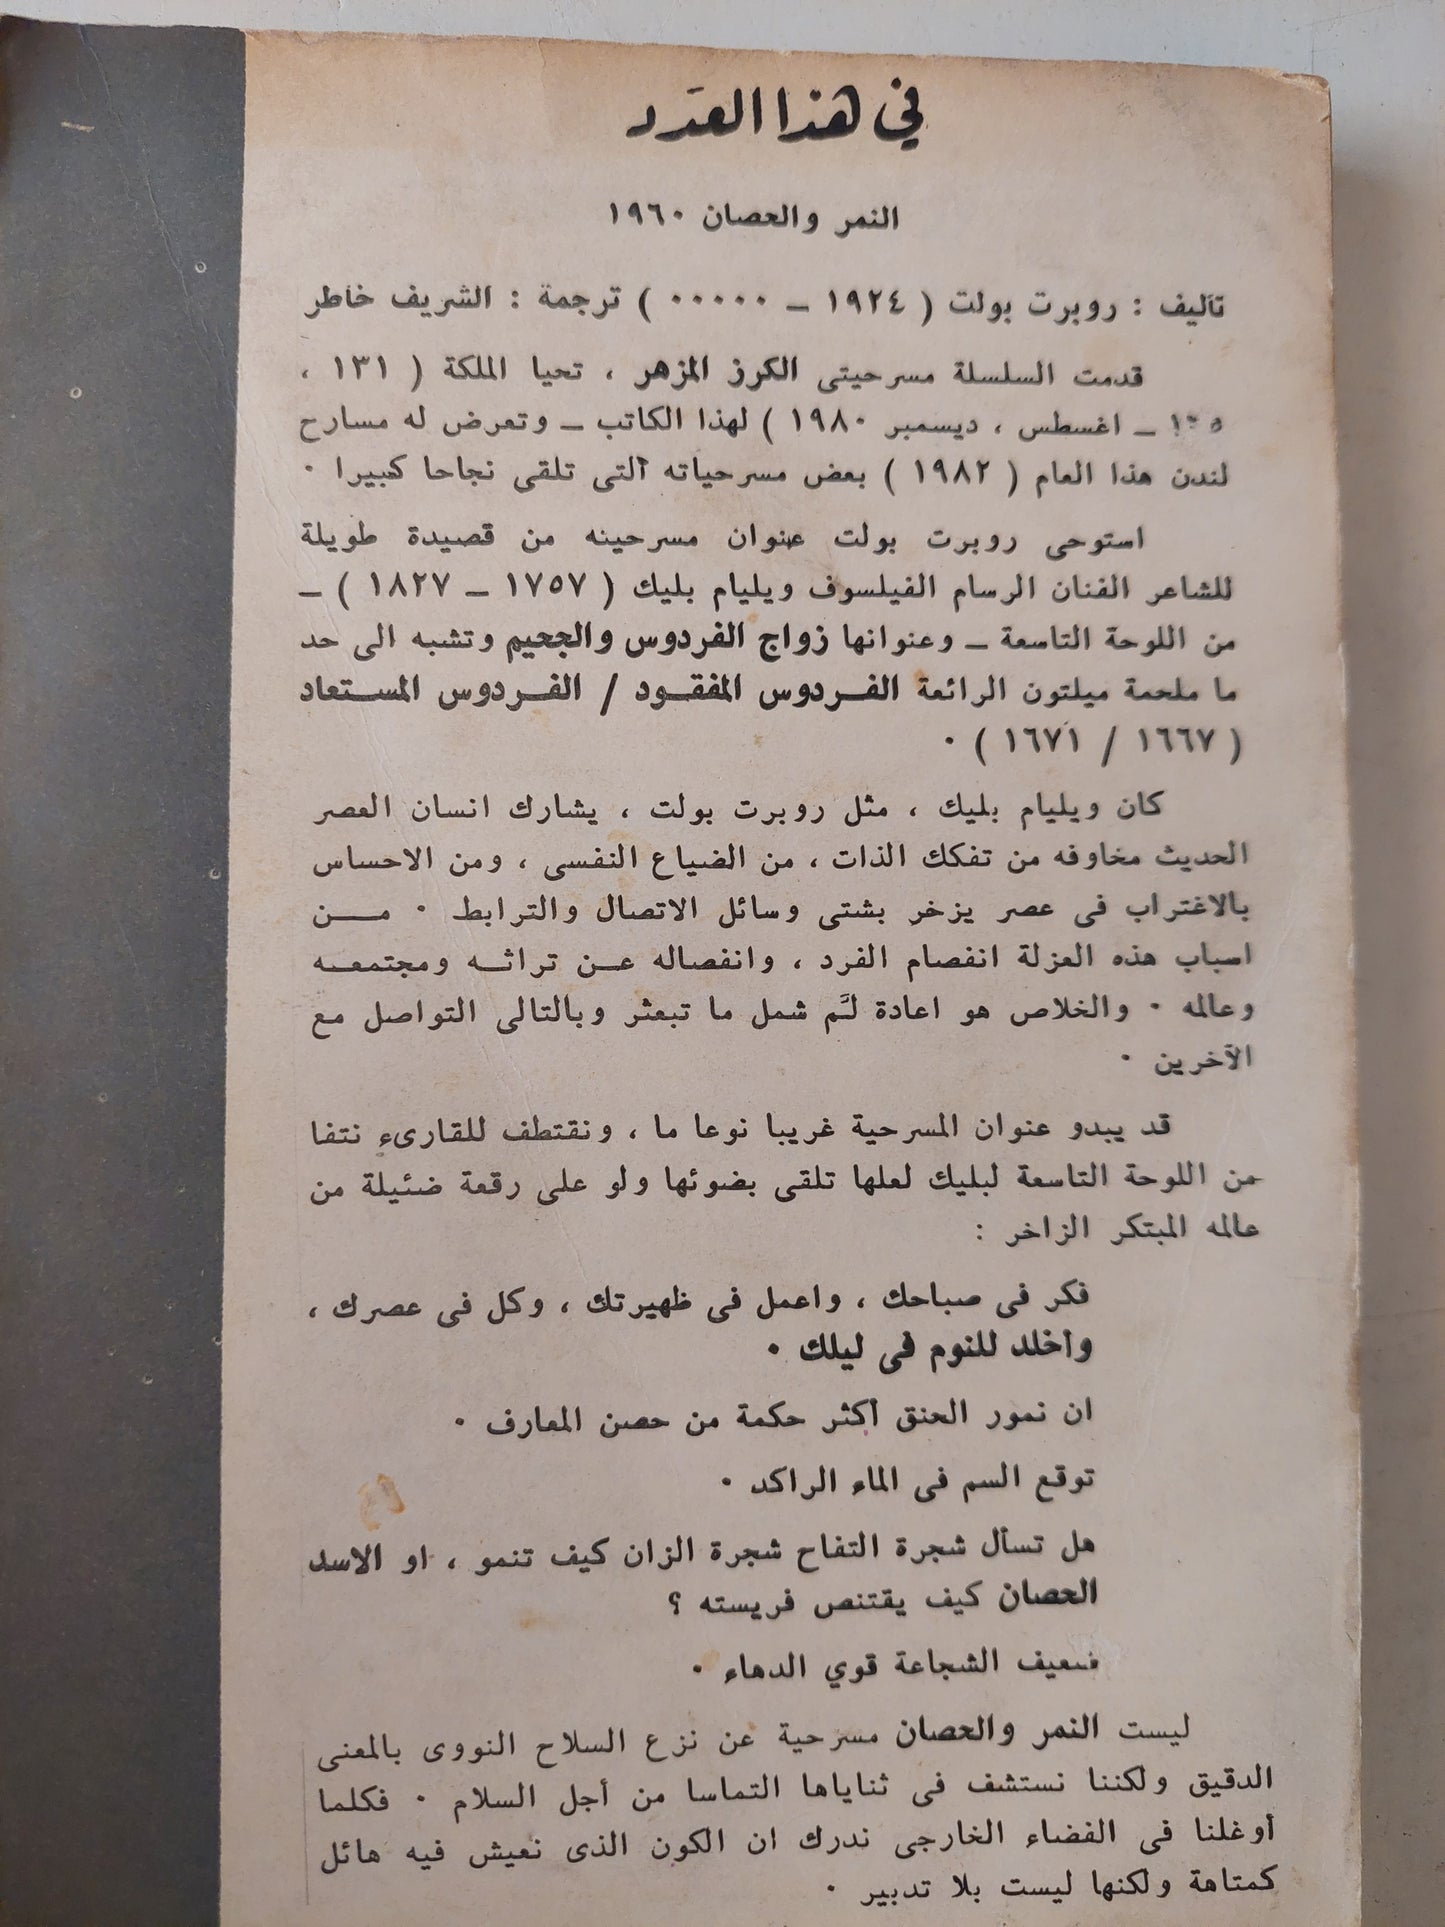 في هذا العدد
النمر والحصان ١٩٦٠
تأليف : روبرت بولت ( ١٩٢٤ ــ ٠٠٠٠٠ ) ترجمة : الشريف خاطر
قدمت السلسلة مسرحيتى الكرز المزهر ، تحيا الملكة ( ١٣١ ،
ــ اغسطس ، ديسمبر ١٩٨٠ ) لهذا الكاتب ــ وتعرض له مسارح
لندن هذا العام ( ١٩٨٢ ) بعض مسرحياته التى تلقى نجاحا كبيرا ٠
استوحى روبرت بولت عنوان مسرحينه من قصيدة طويلة
للشاعر الفنان الرسام الفيلسوف ويليام بليك ( ١٧٥٧ ــ ١٨٢٧ ) ــ
من اللوحة التاسعة ــ وعنوانها زواج الفردوس والجحيم وتشبه الى حد
ما ملحمة ميلتون الرائعة الفردوس المفقود / الفردوس المستعاد
( ١٦٦٧ / ١٦٧١ ) ٠
كان ويليام بليك ، مثل روبرت بولت ، يشارك انسان العصر
الحديث مخاوفه من تفكك الذات ، من الضياع النفسى ، ومن الاحساس
بالاغتراب فى عصر يزخر بشتى وسائل الاتصال والترابط ٠ من
اسباب هذه العزلة انفصام الفرد ، وانفصاله عن تراثه ومجتمعه
وعالمه ٠ والخلاص هو اعادة لَّم شمل ما تبعثر وبالتالى التواصل مع
الآخرين ٠
قد يبدو عنوان المسرحية غريبا نوعا ما ، ونقتطف للقارىء نتفا
من اللوحة التاسعة لبليك لعلها تلقى بضوئها ولو على رقعة ضئيلة من
عالمه المبتكر الزاخر :
فكر فى صباحك ، واعمل فى ظهيرتك ، وكل فى عصرك ،
واخلد للنوم فى ليلك ٠
ان نمور الحنق أكثر حكمة من حصن المعارف ٠
توقع السم فى الماء الراكد ٠
هل تسأل شجرة التفاح شجرة الزان كيف تنمو ، او الاسد
الحصان كيف يقتنص فريسته ؟
ضعيف الشجاعة قوي الدهاء ٠
ليست النمر والحصان مسرحية عن نزع السلاح النووى بالمعنى
الدقيق ولكننا نستشف فى ثناياها التماسا من أجل السلام ٠ فكلما
أوغلنا فى الفضاء الخارجى ندرك ان الكون الذى نعيش فيه هائل
كمتاهة ولكنها ليست بلا تدبير ٠